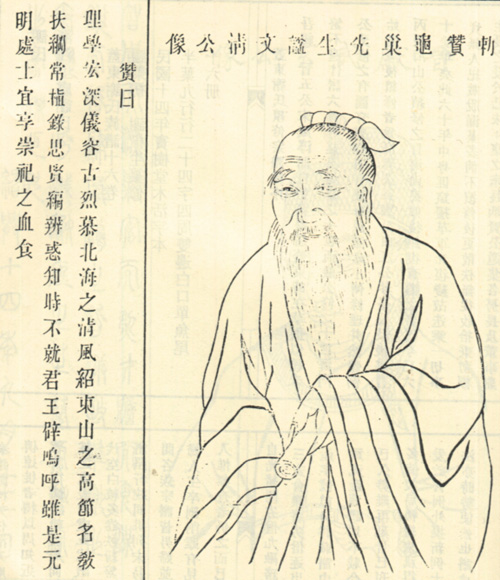 贊龜巢先生謚文清公像
贊曰
理學宏深儀容古烈慕北海之清風紹東山之高節名敎
扶綱常植錄思賢編辨惑知時不就君王辟嗚呼雖是元
明處士宜享崇祀之血食